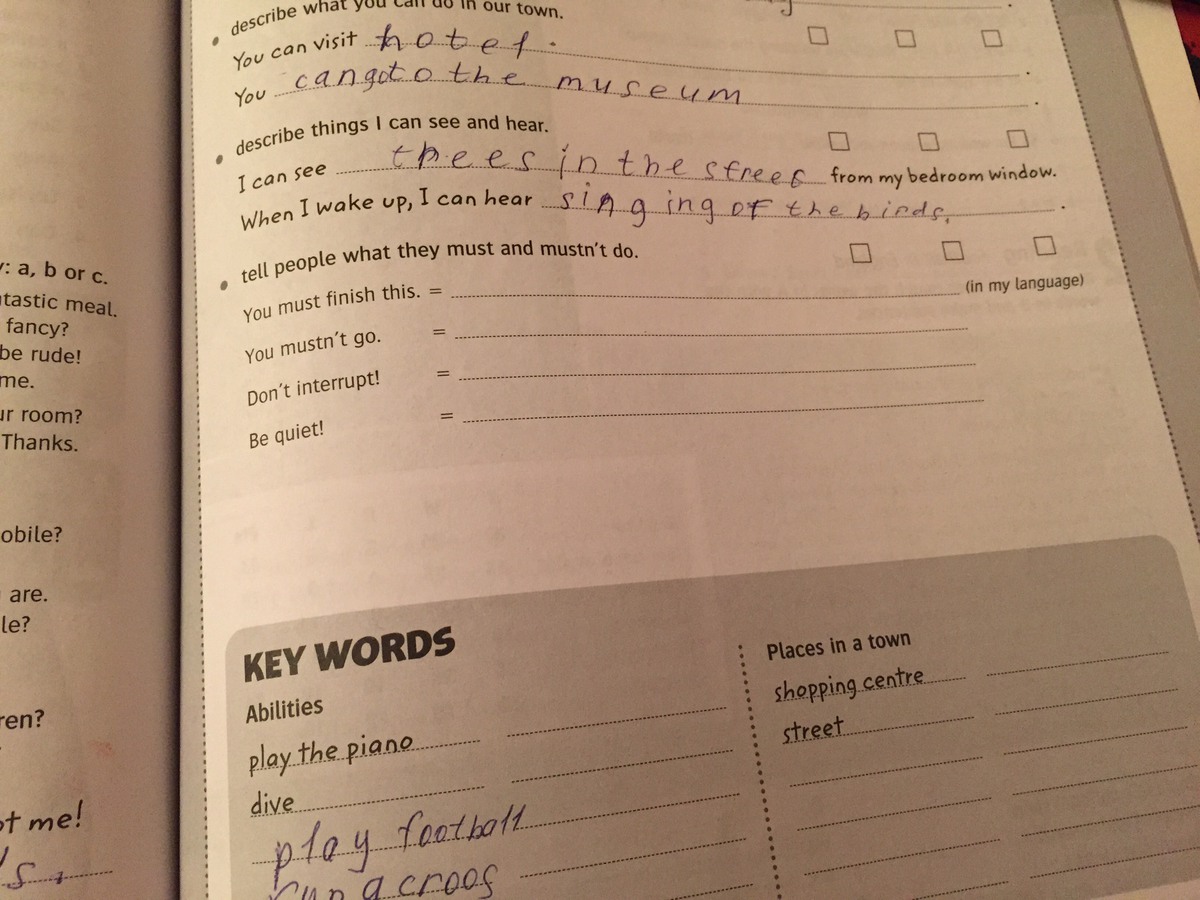 • describe what you can do in our town.
You can visit hotel.
You can go to the museum.
• describe things I can see and hear.
I can see trees in the street from my bedroom window.
When I wake up, I can hear singing of the birds.
• tell people what they must and mustn't do.
You must finish this. = (in my language)
You mustn't go. =
Don't interrupt! =
Be quiet! =
: a, b or c.
tastic meal.
fancy?
be rude!
me.
ur room?
Thanks.
obile?
are.
le?
ren?
ot me!
s.
KEY WORDS
Abilities
play the piano
dive
play football
run acroos
Places in a town
shopping centre
street